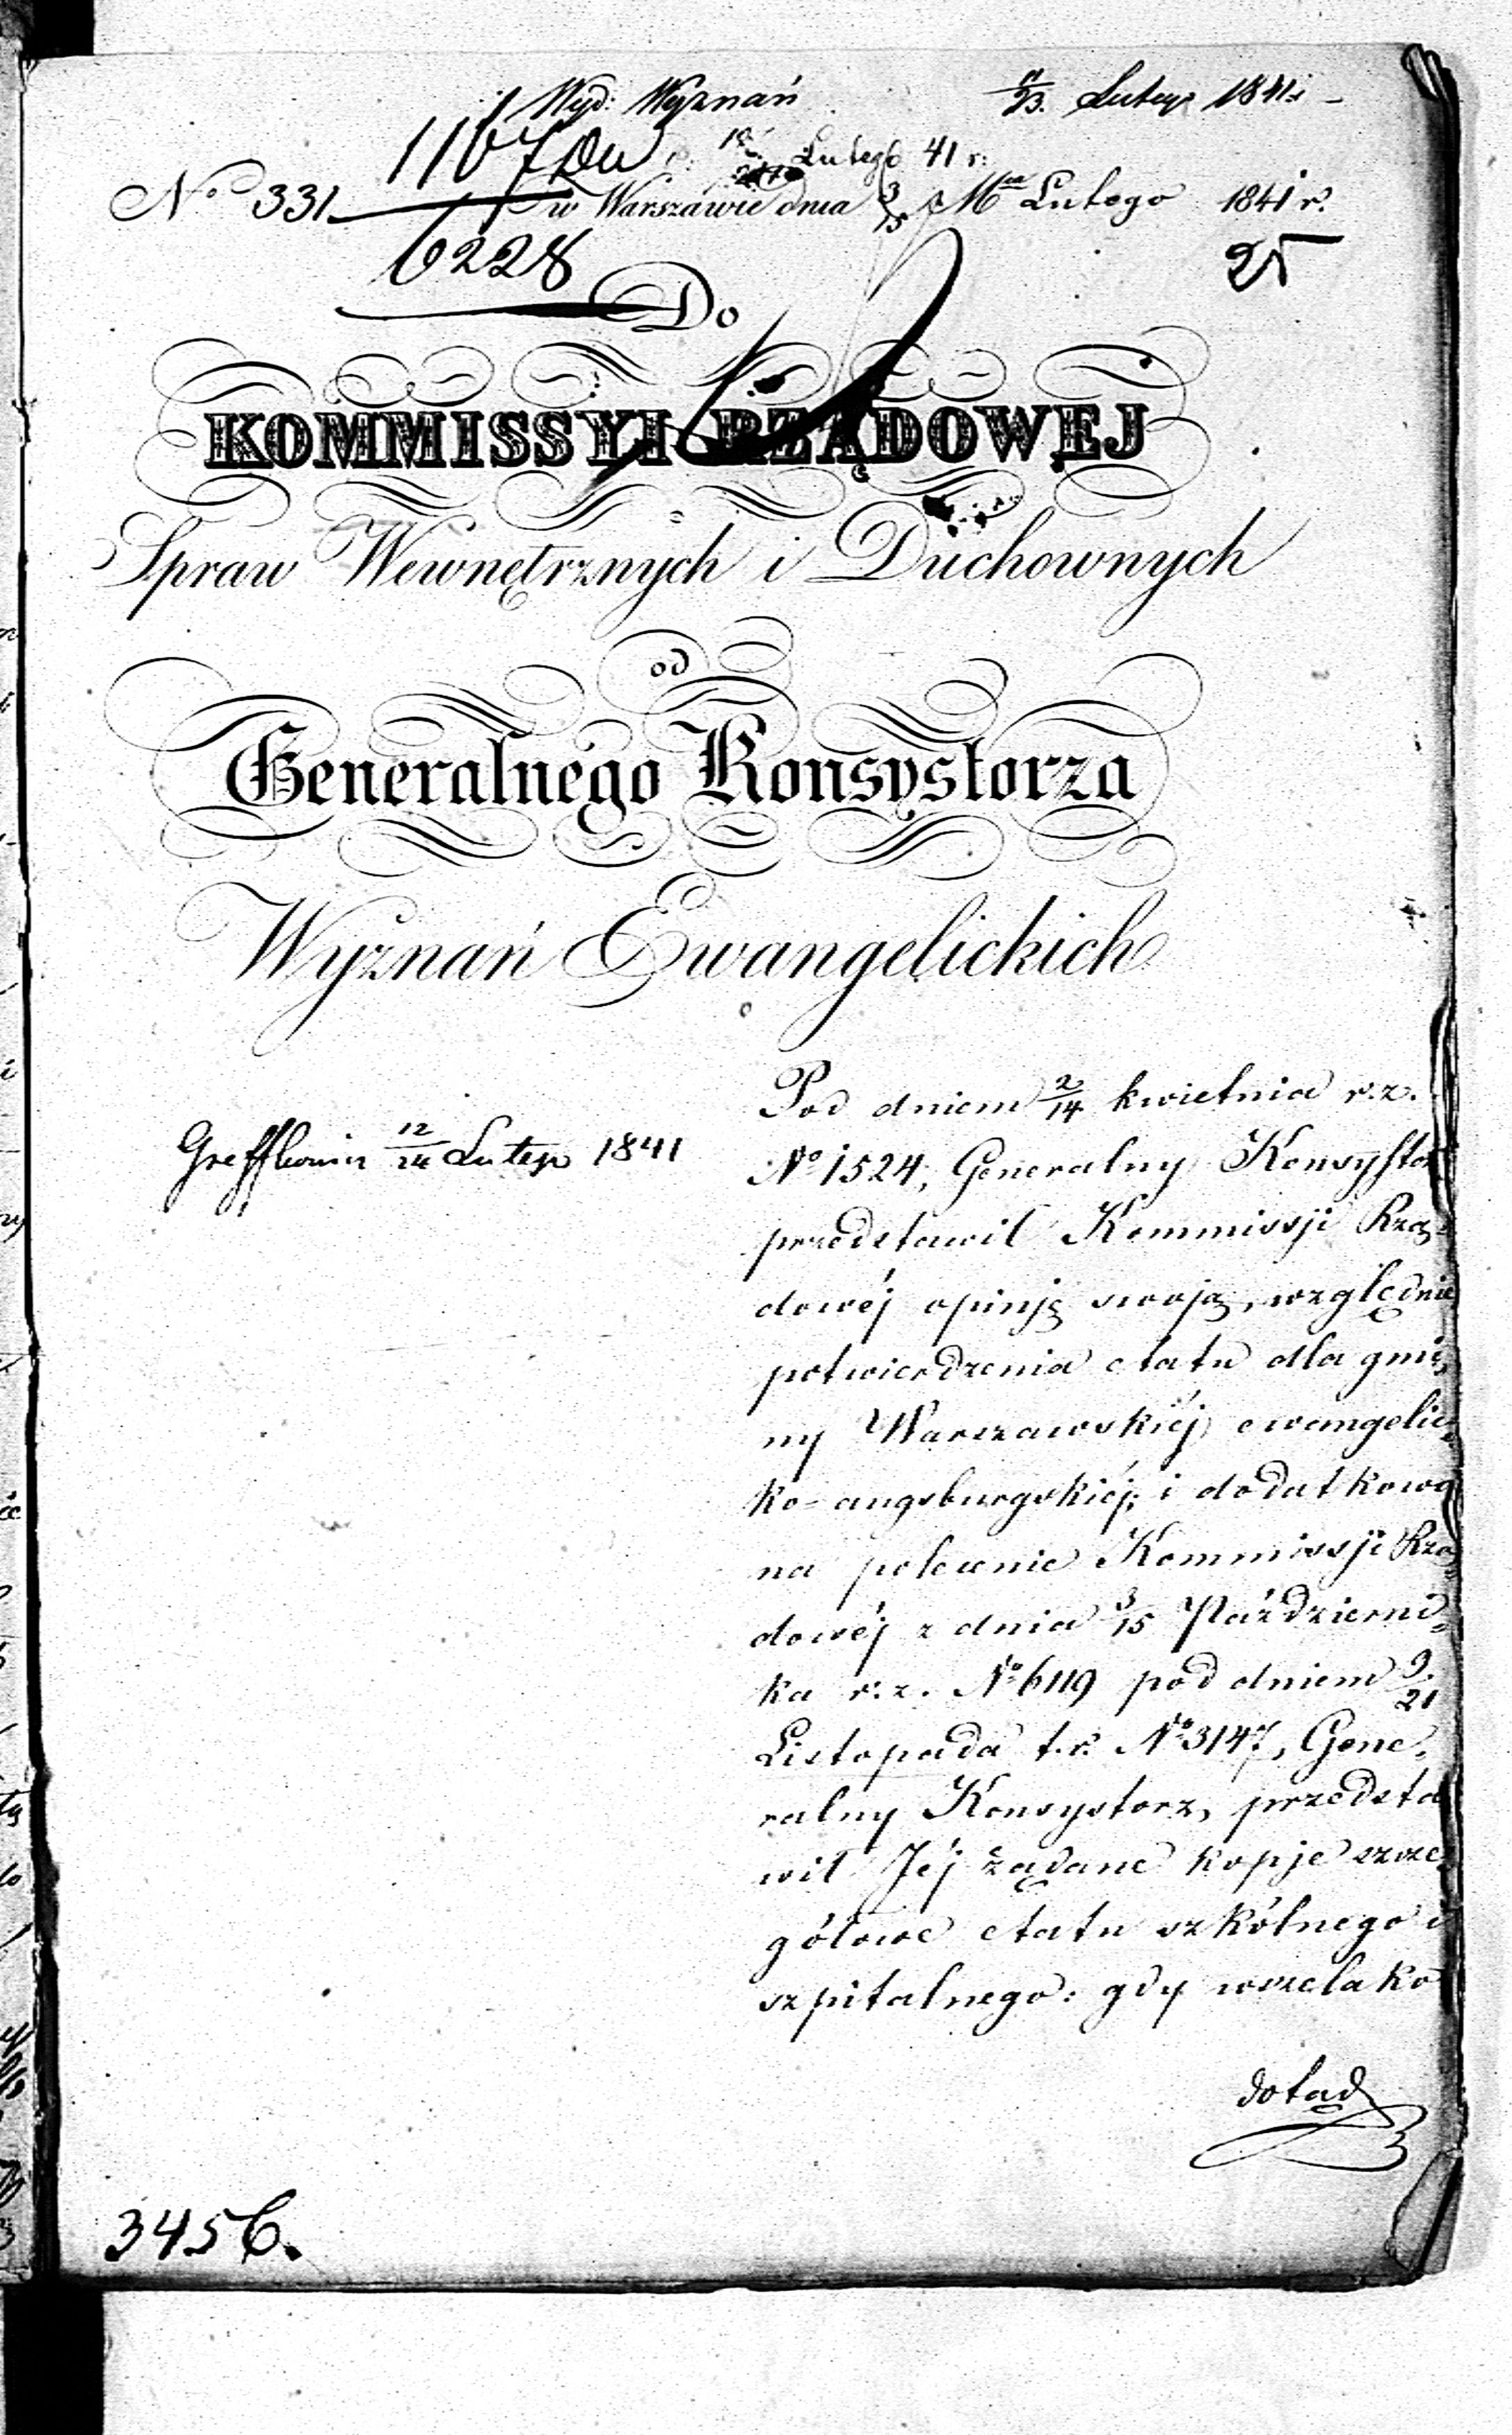 Wyd: Wyznań 11/23. Lutego 1841 r
1167 Du 41 r:
Lutego
No 331 w Warszawie dnia 3/15 Mca Lutego 1841 r.
6228
25
Do
KOMMISSYI RZĄDOWEJ
Spraw Wewnętrznych i Duchownych
od
Generalnego Konsystorza
Wyznań Ewangelickich
Pod dniem 2/14 kwietnia r.z.
12/24 Lutego 1841
No 1524, Generalny Konsystor
przedstawił Kommissji Rzą-
dowéj opinję swoją, względnie
potwierdzenia etatu dla gmi-
ny Warszawskiéj ewangelic-
ko-augsburgskiéj; i dodatkowo
na polecenie Kommissji Rzą-
dowéj z dnia 3/15 Październi-
ka r.z. No 6119 pod dniem 9/21
Listopada t.r. No 3147, Gene-
ralny Konsystorz, przedsta
wił Jéj żądane kopje szcze-
gółowe etatu szkólnego i
szpitalnego: gdy wszelako
dotąd
3456.